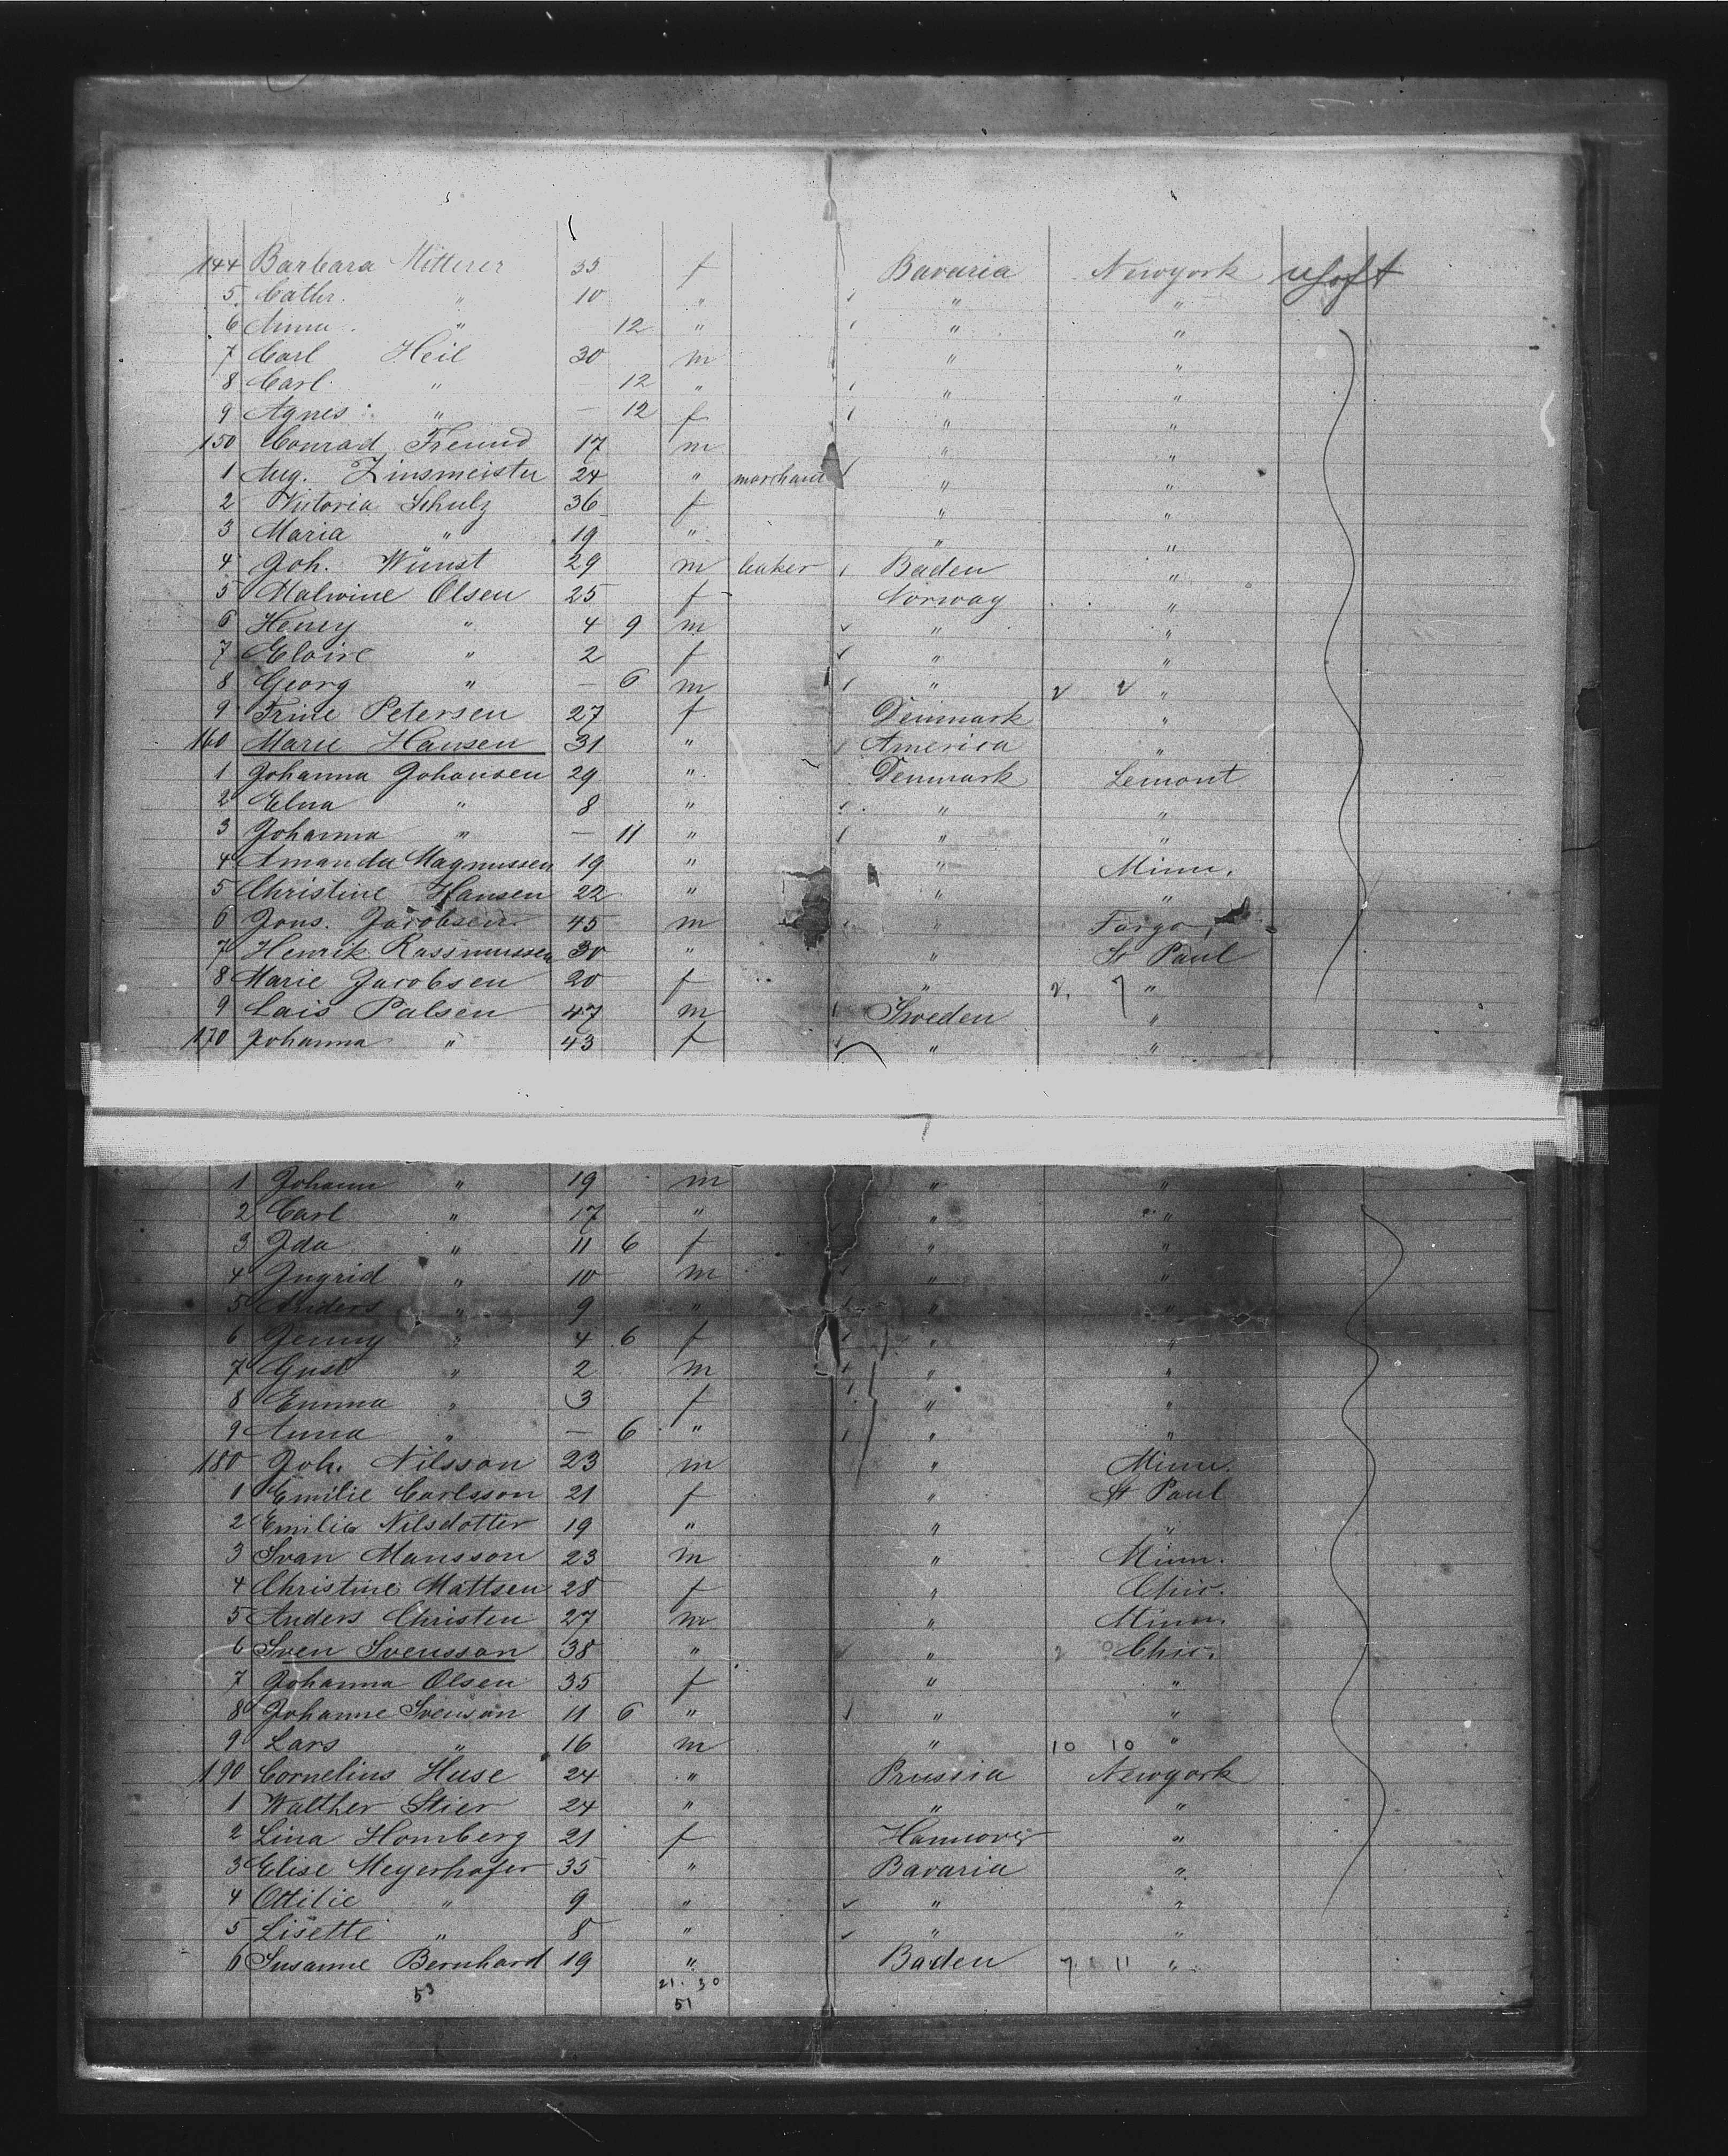 144 Barbara Mitterer 35 f Bavaria Newyork
5 Cathr. " 10 " " "
6 Anna " 12 " " "
7 Carl Heil 30 m " "
8 Carl " 12 " " "
9 Agnes " — 12 f " "
150 Conrad Freund 17 m " "
1 Aug. Zinsmeister 24 " merchant " "
2 Victoria Schulz 36 f " "
3 Maria " 19 " " "
4 Joh. Wünst 29 m baker Baden "
5 Malwine Olsen 25 f Norway "
6 Henry " 4 9 m " "
7 Claire " 2 f " "
8 Georg " — 6 m " "
9 Trine Petersen 27 f Denmark "
160 Marie Hansen 31 " America "
1 Johanna Johansen 29 " Denmark Lemont
2 Elna " 8 " " "
3 Johanna " — 11 " " "
4 Amanda Magnussen 19 " " Minn.
5 Christine Hansen 22 " " "
6 Jons. Jacobsen 45 m " Fargo,
7 Henrik Rassmussen 30 " " St Paul
8 Marie Jacobsen 20 f " 2. 7 "
9 Lais Palsen 47 m Sweden "
170 Johanna " 43 f " "
7
1 Johann " 19 m " "
2 Carl " 17 " " "
3 Ida " 11 6 f " "
4 Ingrid " 10 m " "
5 Anders " 9 " " "
6 Jenny " 4 6 f " "
7 Gust " 2 m " "
8 Emma " 3 f " "
9 Anna " — 6 " " "
180 Joh. Nilsson 23 m " Minn.
1 Emilie Carlsson 21 f " St Paul
2 Emilia Nilsdotter 19 " " "
3 Svan Mansson 23 m " Minn.
4 Christine Mattsen 28 f " Chic.
5 Anders Christen 27 m " Minn.
6 Sven Svensson 38 " " Chic.
7 Johanna Olsen 35 f " "
8 Johanne Svenson 11 6 " " "
9 Lars " 16 m " 10 10 "
190 Cornelius Huse 24 " Prussia Newyork
1 Walther Stier 24 " " "
2 Lina Homberg 21 f Hannover "
3 Elise Meyerhofer 35 " Bavaria "
4 Ottilie " 9 " " "
5 Lisette " 8 " " "
6 Susanne Bernhard 19 " Baden 7 11 "
53 21. 30
51